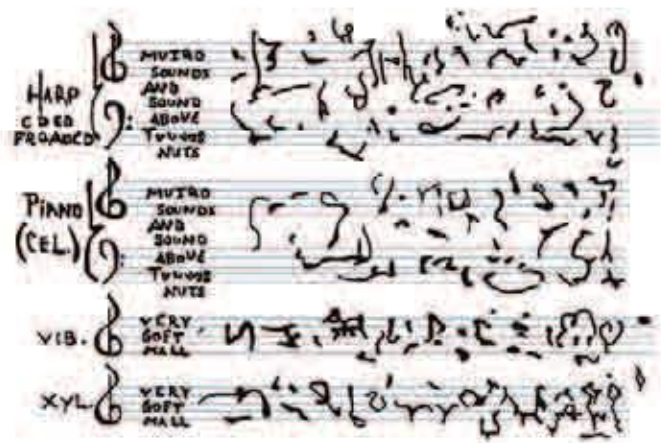 HARP
MUTRO
SOUNDS
AND
SOUND
ABOVE
TUUNGS
NUTS
PIANO
(CEL.)
MUTRO
SOUNDS
AND
SOUND
ABOVE
NUTS
VIB.
VERY
SOFT
MALL
XYL
VERY
SOFT
MALL